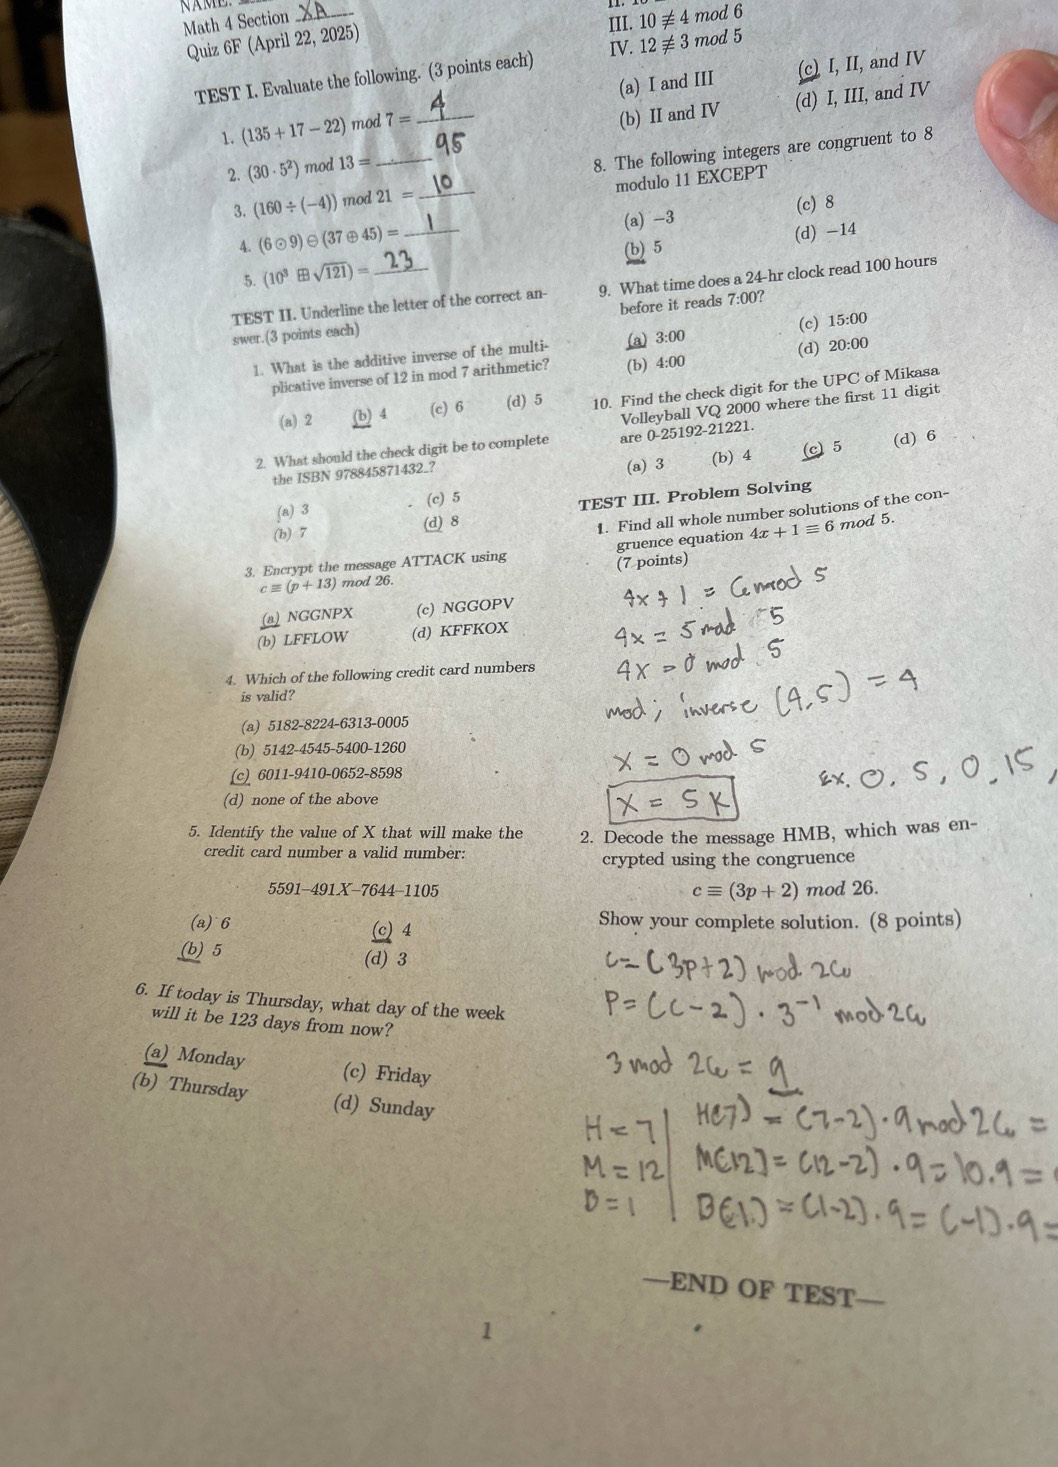 NAME:
Math 4 Section XA
Quiz 6F (April 22, 2025)
TEST I. Evaluate the following. (3 points each)
1. (135 + 17 − 22) mod 7 = 4
2. (30 · 5²) mod 13 = 95
3. (160 ÷ (−4)) mod 21 = 10
4. (6 ⊙ 9) ⊖ (37 ⊕ 45) = 1
5. (10³ ⊞ √121) = 23
TEST II. Underline the letter of the correct an-
swer.(3 points each)
1. What is the additive inverse of the multi-
plicative inverse of 12 in mod 7 arithmetic?
(a) 2 (b) 4 (c) 6 (d) 5
2. What should the check digit be to complete
the ISBN 978845871432_?
(a) 3 (c) 5
(b) 7 (d) 8
3. Encrypt the message ATTACK using
c ≡ (p + 13) mod 26.
(a) NGGNPX (c) NGGOPV
(b) LFFLOW (d) KFFKOX
4. Which of the following credit card numbers
is valid?
(a) 5182-8224-6313-0005
(b) 5142-4545-5400-1260
(c) 6011-9410-0652-8598
(d) none of the above
5. Identify the value of X that will make the
credit card number a valid number:
5591-491X-7644-1105
(a) 6 (c) 4
(b) 5 (d) 3
6. If today is Thursday, what day of the week
will it be 123 days from now?
(a) Monday (c) Friday
(b) Thursday (d) Sunday
III. 10 ≢ 4 mod 6
IV. 12 ≢ 3 mod 5
(a) I and III (c) I, II, and IV
(b) II and IV (d) I, III, and IV
8. The following integers are congruent to 8
modulo 11 EXCEPT
(a) −3 (c) 8
(b) 5 (d) −14
9. What time does a 24-hr clock read 100 hours
before it reads 7:00?
(a) 3:00 (c) 15:00
(b) 4:00 (d) 20:00
10. Find the check digit for the UPC of Mikasa
Volleyball VQ 2000 where the first 11 digit
are 0-25192-21221.
(a) 3 (b) 4 (c) 5 (d) 6
TEST III. Problem Solving
1. Find all whole number solutions of the con-
gruence equation 4x + 1 ≡ 6 mod 5.
(7 points)
4x + 1 = 6 mod 5
4x = 5 mod 5
4x = 0 mod 5
mod; inverse (4,5) = 4
x = 0 mod 5
x = 5K
Ex. 0, 5, 0, 15,
2. Decode the message HMB, which was en-
crypted using the congruence
c ≡ (3p + 2) mod 26.
Show your complete solution. (8 points)
c = (3p+2) mod 26
P = (c-2) · 3⁻¹ mod 26
3 mod 26 = 9
H = 7 H(7) = (7-2) · 9 mod 26 =
M = 12 M(12) = (12-2) · 9 = 10.9 =
B = 1 B(1) = (1-2) · 9 = (-1) · 9 =
—END OF TEST—
1